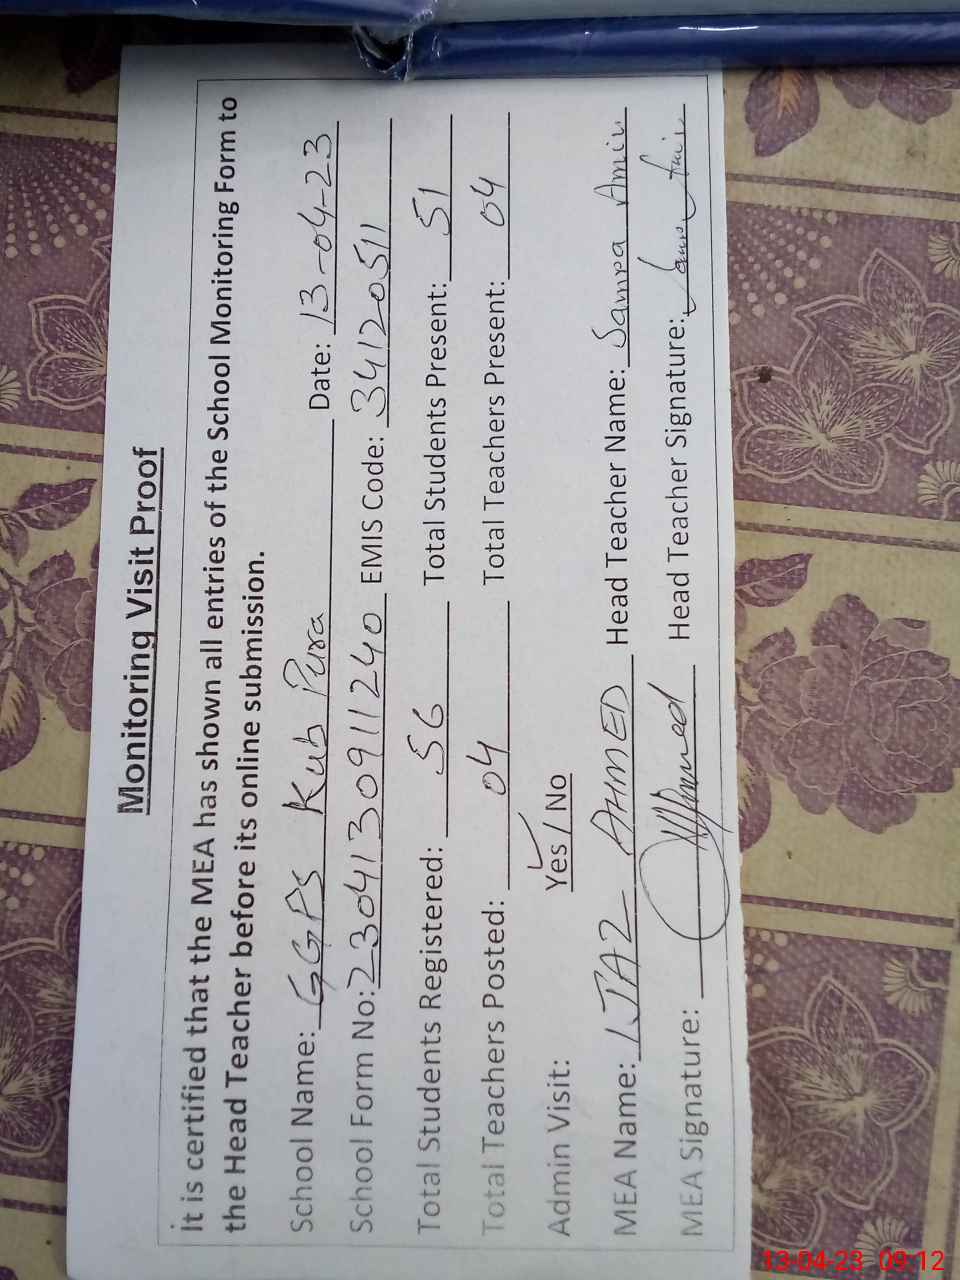 Monitoring Visit Proof
It is certified that the MEA has shown all entries of the School Monitoring Form to
the Head Teacher before its online submission.
School Name: GGPS Kub Pura Date: 13-04-23
School Form No: 2304130911240 EMIS Code: 34120511
Total Students Registered: 56 Total Students Present: 51
Total Teachers Posted: 04 Total Teachers Present: 04
Admin Visit: Yes / No
MEA Name: IJAZ AHMED Head Teacher Name: Samra Amin
MEA Signature: Ahmed Head Teacher Signature:
13-04-23 09:12